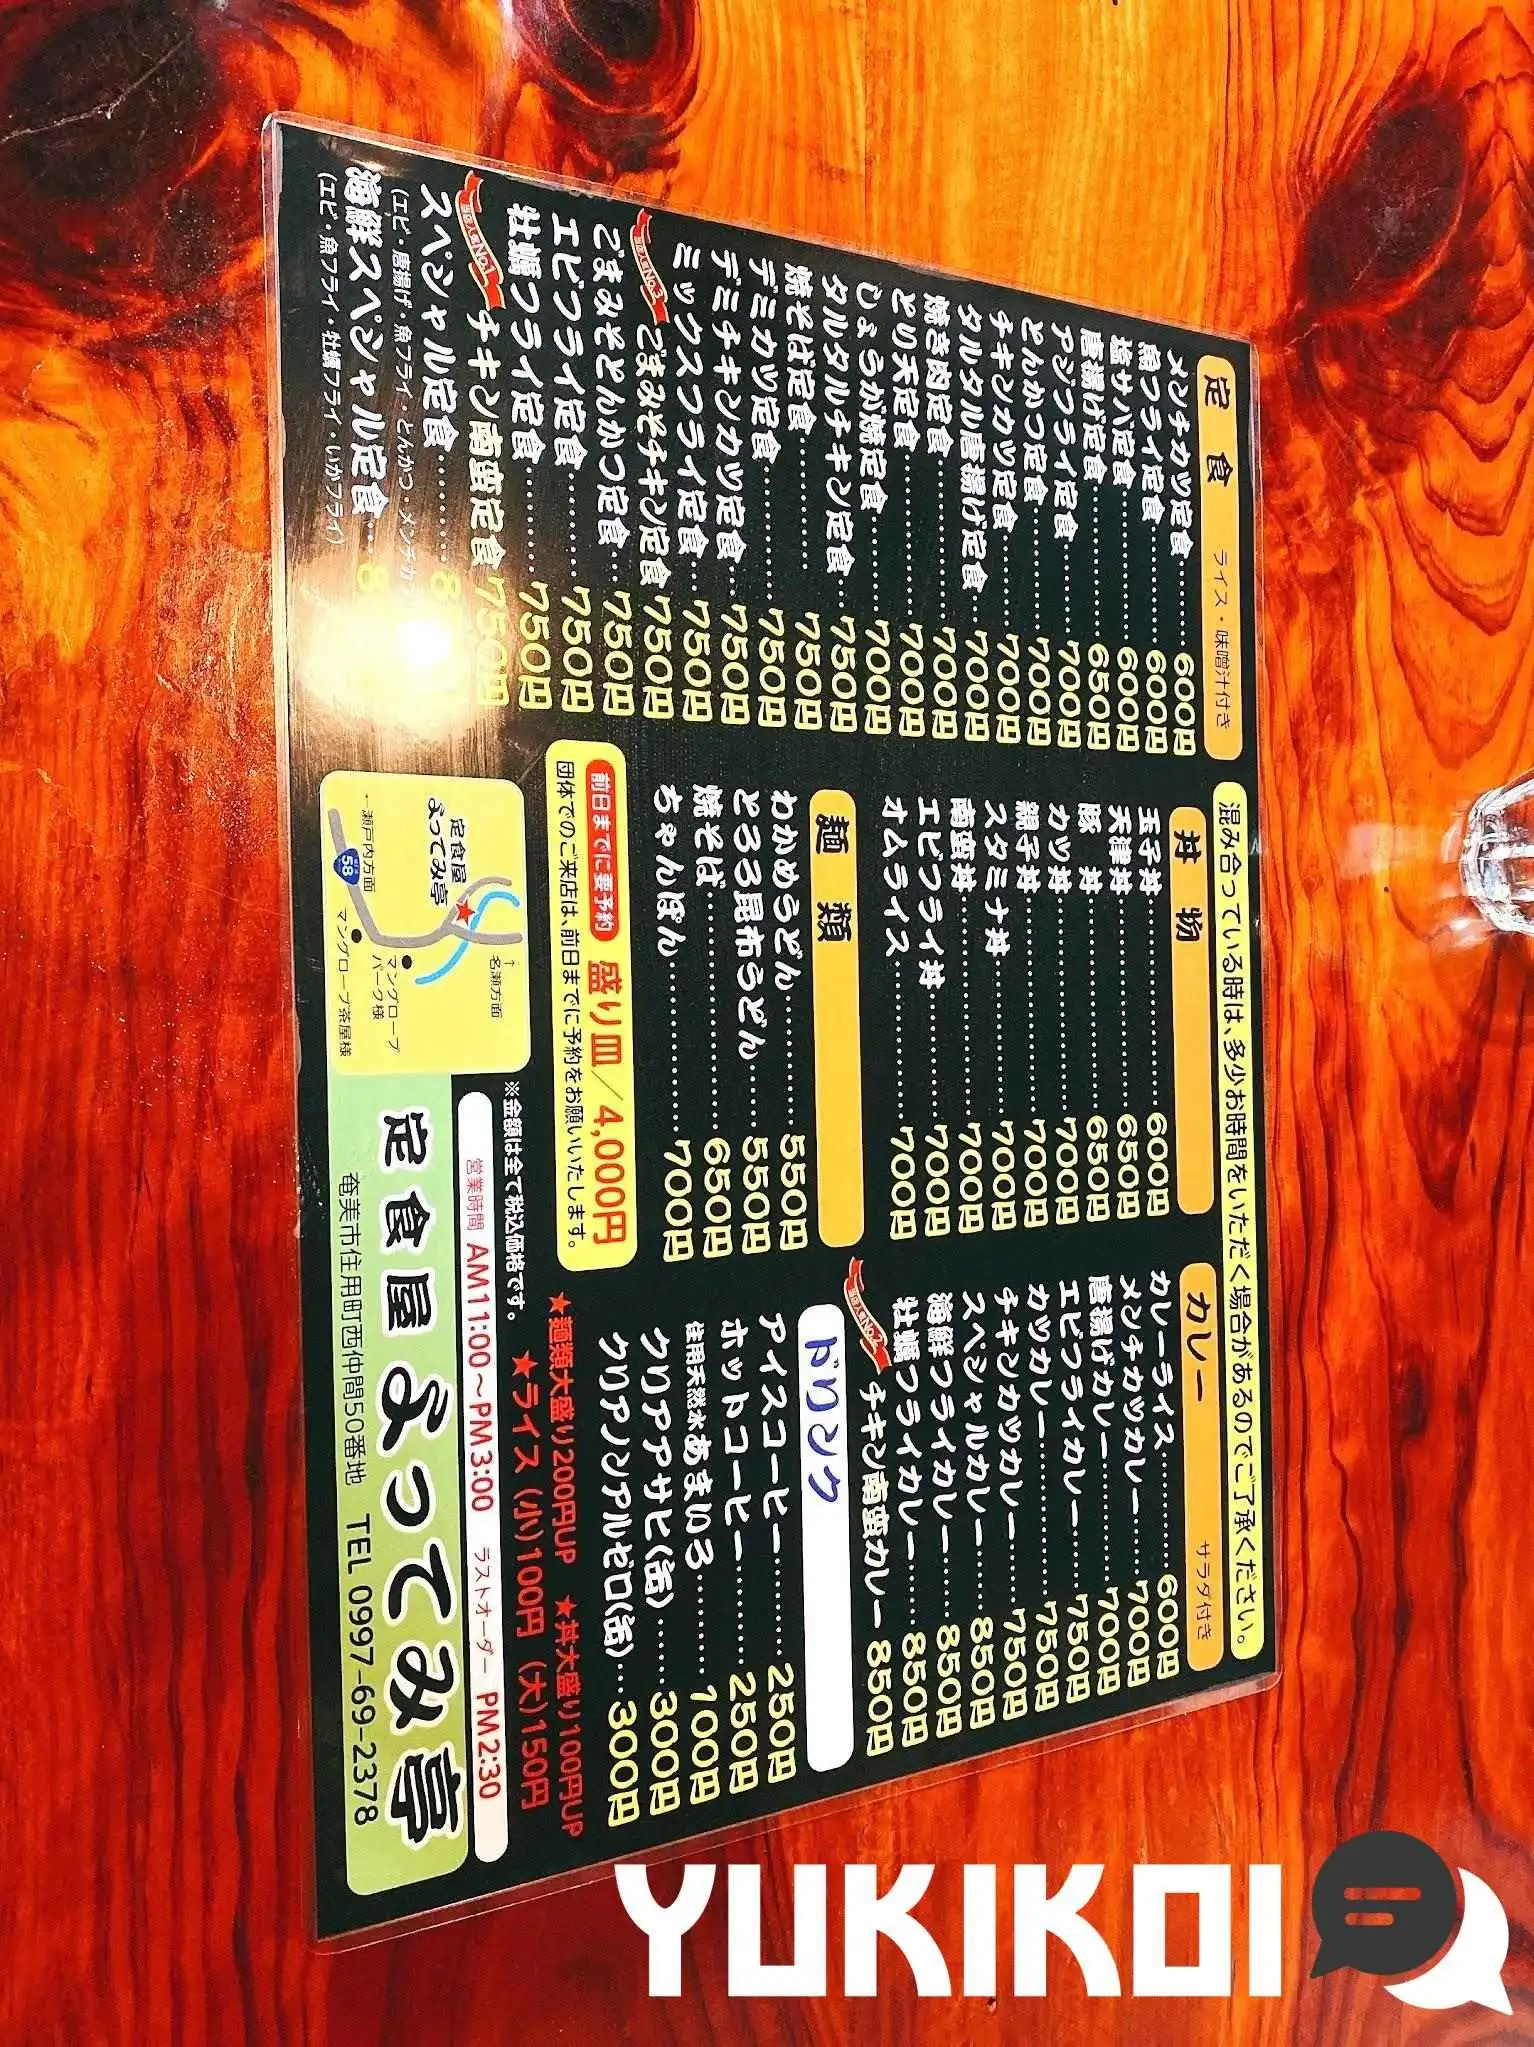 混み合っている時は、多少お時間をいただく場合があるのでご了承ください。
定食 ライス・味噌汁付き
メンチカツ定食 600円
魚フライ定食 600円
塩サバ定食 600円
唐揚げ定食 650円
アジフライ定食 700円
とんかつ定食 700円
チキンカツ定食 700円
タルタル唐揚げ定食 700円
焼き肉定食 700円
とり天定食 700円
しょうが焼定食 700円
タルタルチキン定食 750円
焼そば定食 750円
デミカツ定食 750円
デミチキンカツ定食 750円
ミックスフライ定食 750円
当店人気No.3 ごまみそチキン定食 750円
ごまみそとんかつ定食 750円
エビフライ定食 750円
牡蠣フライ定食 750円
当店人気No.1 チキン南蛮定食 750円
スペシャル定食 8
(エビ・唐揚げ・魚フライ・とんかつ・メンチカ
海鮮スペシャル定食 8
(エビ・魚フライ・牡蠣フライ・いかフライ)
丼物
玉子丼 600円
天津丼 650円
豚丼 650円
カツ丼 700円
親子丼 700円
スタミナ丼 700円
南蛮丼 700円
エビフライ丼 700円
オムライス 700円
麺類
わかめうどん 550円
とろろ昆布うどん 550円
焼そば 650円
ちゃんぽん 700円
前日までに要予約 盛り皿/4,000円
団体でのご来店は、前日までに予約をお願いいたします。
カレー サラダ付き
カレーライス 600円
メンチカツカレー 700円
唐揚げカレー 700円
エビフライカレー 750円
カツカレー 750円
チキンカツカレー 750円
スペシャルカレー 850円
海鮮フライカレー 850円
牡蠣フライカレー 850円
当店人気No.2 チキン南蛮カレー 850円
ドリンク
アイスコーヒー 250円
ホットコーヒー 250円
住用天然水あまいろ 100円
クリアアサヒ〈缶〉 300円
クリアノンアルゼロ〈缶〉 300円
★麺類大盛り200円UP ★丼大盛り100円UP
★ライス (小)100円 (大)150円
※金額は全て税込価格です。
営業時間 AM11:00~PM3:00 ラストオーダー PM2:30
定食屋 よってみ亭
奄美市住用町西仲間50番地 TEL 0997-69-2378
↑名瀬方面
定食屋
よってみ亭
マングローブ
パーク様
マングローブ茶屋様
58
←瀬戸内方面
YUKIKOI